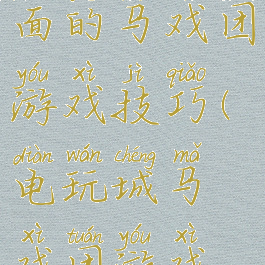 面的马戏团
yóu xì jì qiǎo
游戏技巧(
diàn wán chéng mǎ
电玩城马
xì tuán yóu xì
戏团游戏